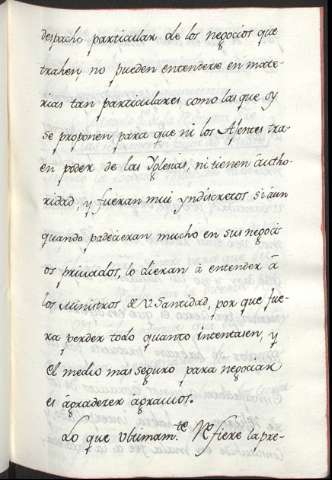 despacho particular de los negocios que
trahen no pueden entenderse en mate-
rias tan particulares como las que oy
se proponen, para que ni los Agentes tra-
en poder de las Yglesias, ni tienen àutho-
ridad, y fueran mui yndiscretos si àun
quando padecieran mucho en sus negoci-
os privados, lo dieran à entender à
los Ministros de V. Santidad, por que fue-
ra perder todo quanto intentasen, y
el medio mas seguro para negociar
es àgradecer àgravios.
Lo que ultimam.te refiere la pre-